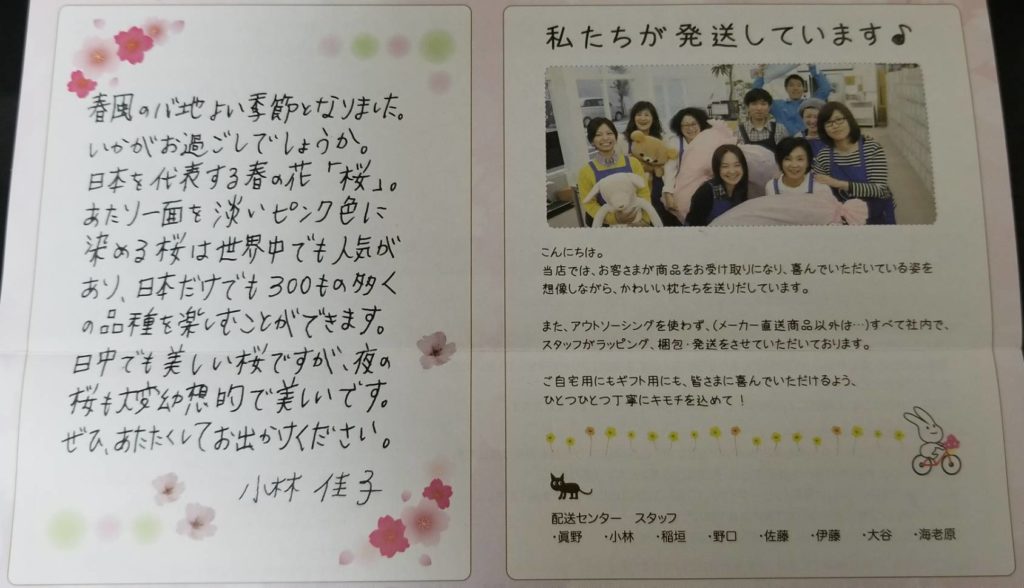 春風の心地よい季節となりました。
いかがお過ごしでしょうか。
日本を代表する春の花「桜」。
あたり一面を淡いピンク色に
染める桜は世界中でも人気が
あり、日本だけでも300もの多く
の品種を楽しむことができます。
日中でも美しい桜ですが、夜の
桜も大変幼想的で美しいです。
ぜひ、あたたくしてお出かけください。
小林 佳子
私たちが発送しています♪
こんにちは。
当店では、お客さまが商品をお受け取りになり、喜んでいただいている姿を
想像しながら、かわいい枕たちを送りだしています。
また、アウトソーシングを使わず、(メーカー直送商品以外は…)すべて社内で、
スタッフがラッピング、梱包・発送をさせていただいております。
ご自宅用にもギフト用にも、皆さまに喜んでいただけるよう、
ひとつひとつ丁寧にキモチを込めて！
配送センター スタッフ
・眞野 ・小林 ・稲垣 ・野口 ・佐藤 ・伊藤 ・大谷 ・海老原